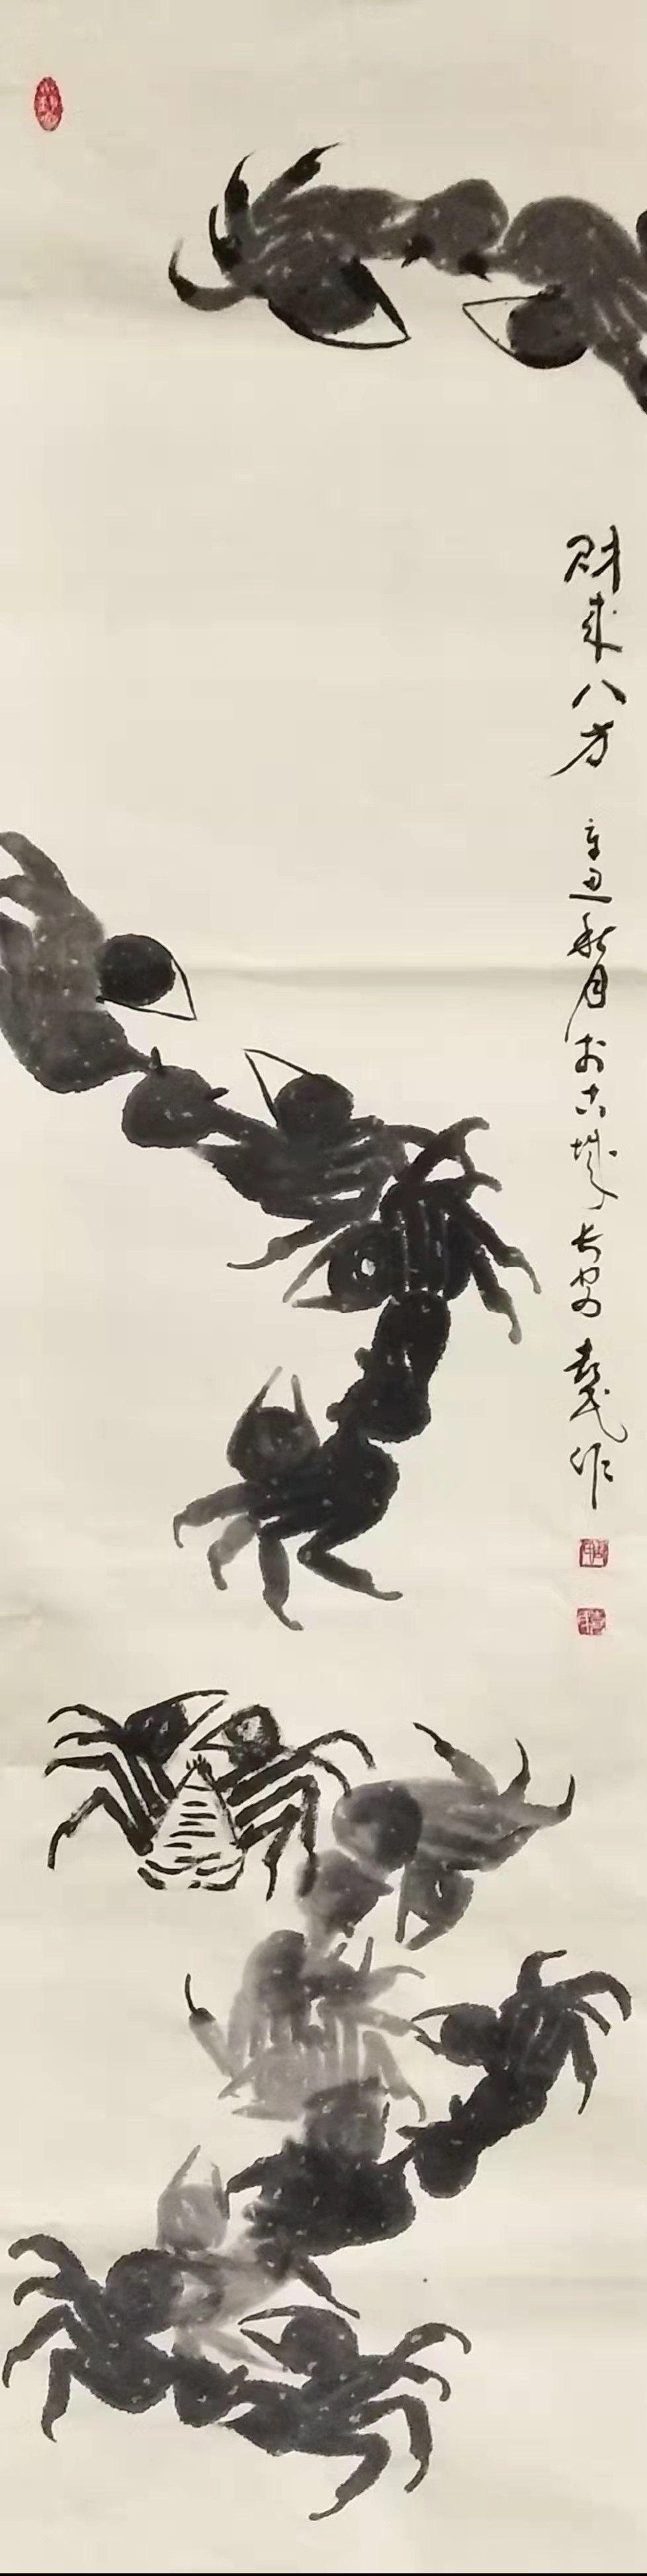 财来八方 辛丑秋月於古城长安 作